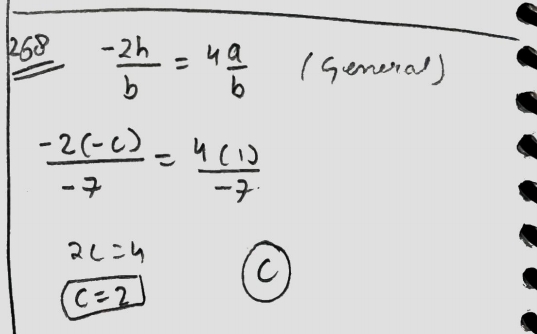 268 -2h/b = 4 a/b (General)
-2(-c)/-7 = 4(1)/-7.
2c = 4
c = 2 C